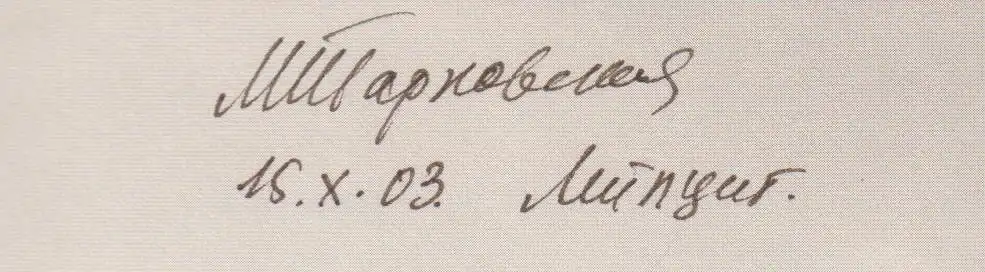 МТарковская
15.X.03. Лейпциг.